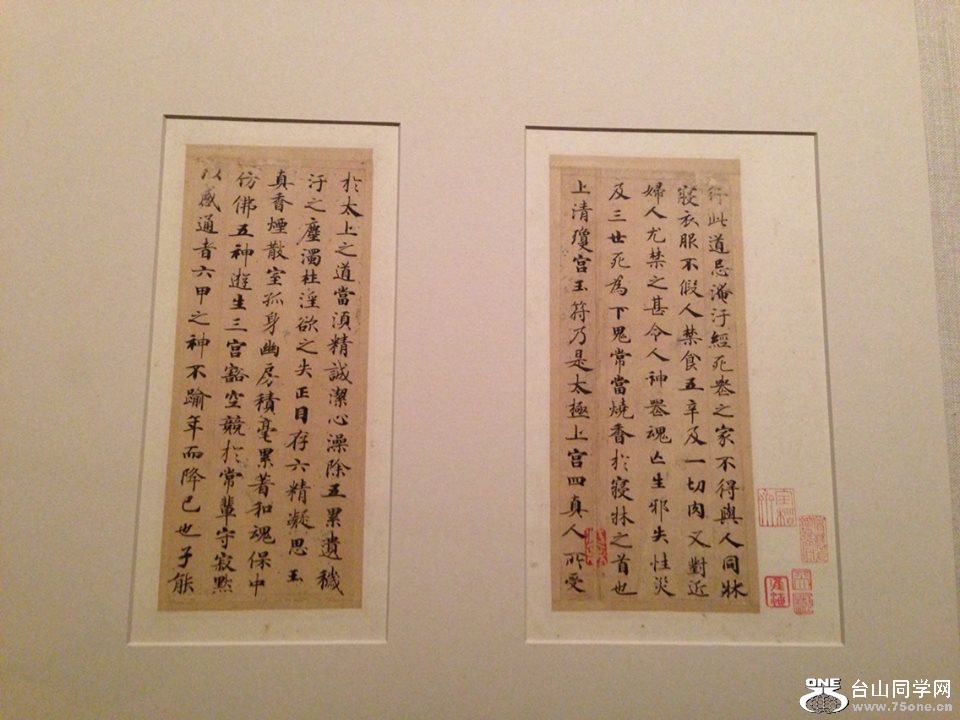 行此道忌淹汙經死喪之家不得與人同牀
寢衣服不假人禁食五辛及一切肉又對近
婦人尤禁之甚令人神喪魂亡生邪失性災
及三世死為下鬼常當燒香於寢牀之首也
上清瓊宮玉符乃是太極上宮四真人所受
於太上之道當湏精誠潔心澡除五累遺穢
汙之塵濁杜淫欲之失正目存六精凝思玉
真香煙散室孤身幽房積毫累著和魂保中
仿佛五神遊生三宮豁空競於常輩守寂默
以感通者六甲之神不踰年而降己也子能
ONE
台山同学网
www.75one.cn